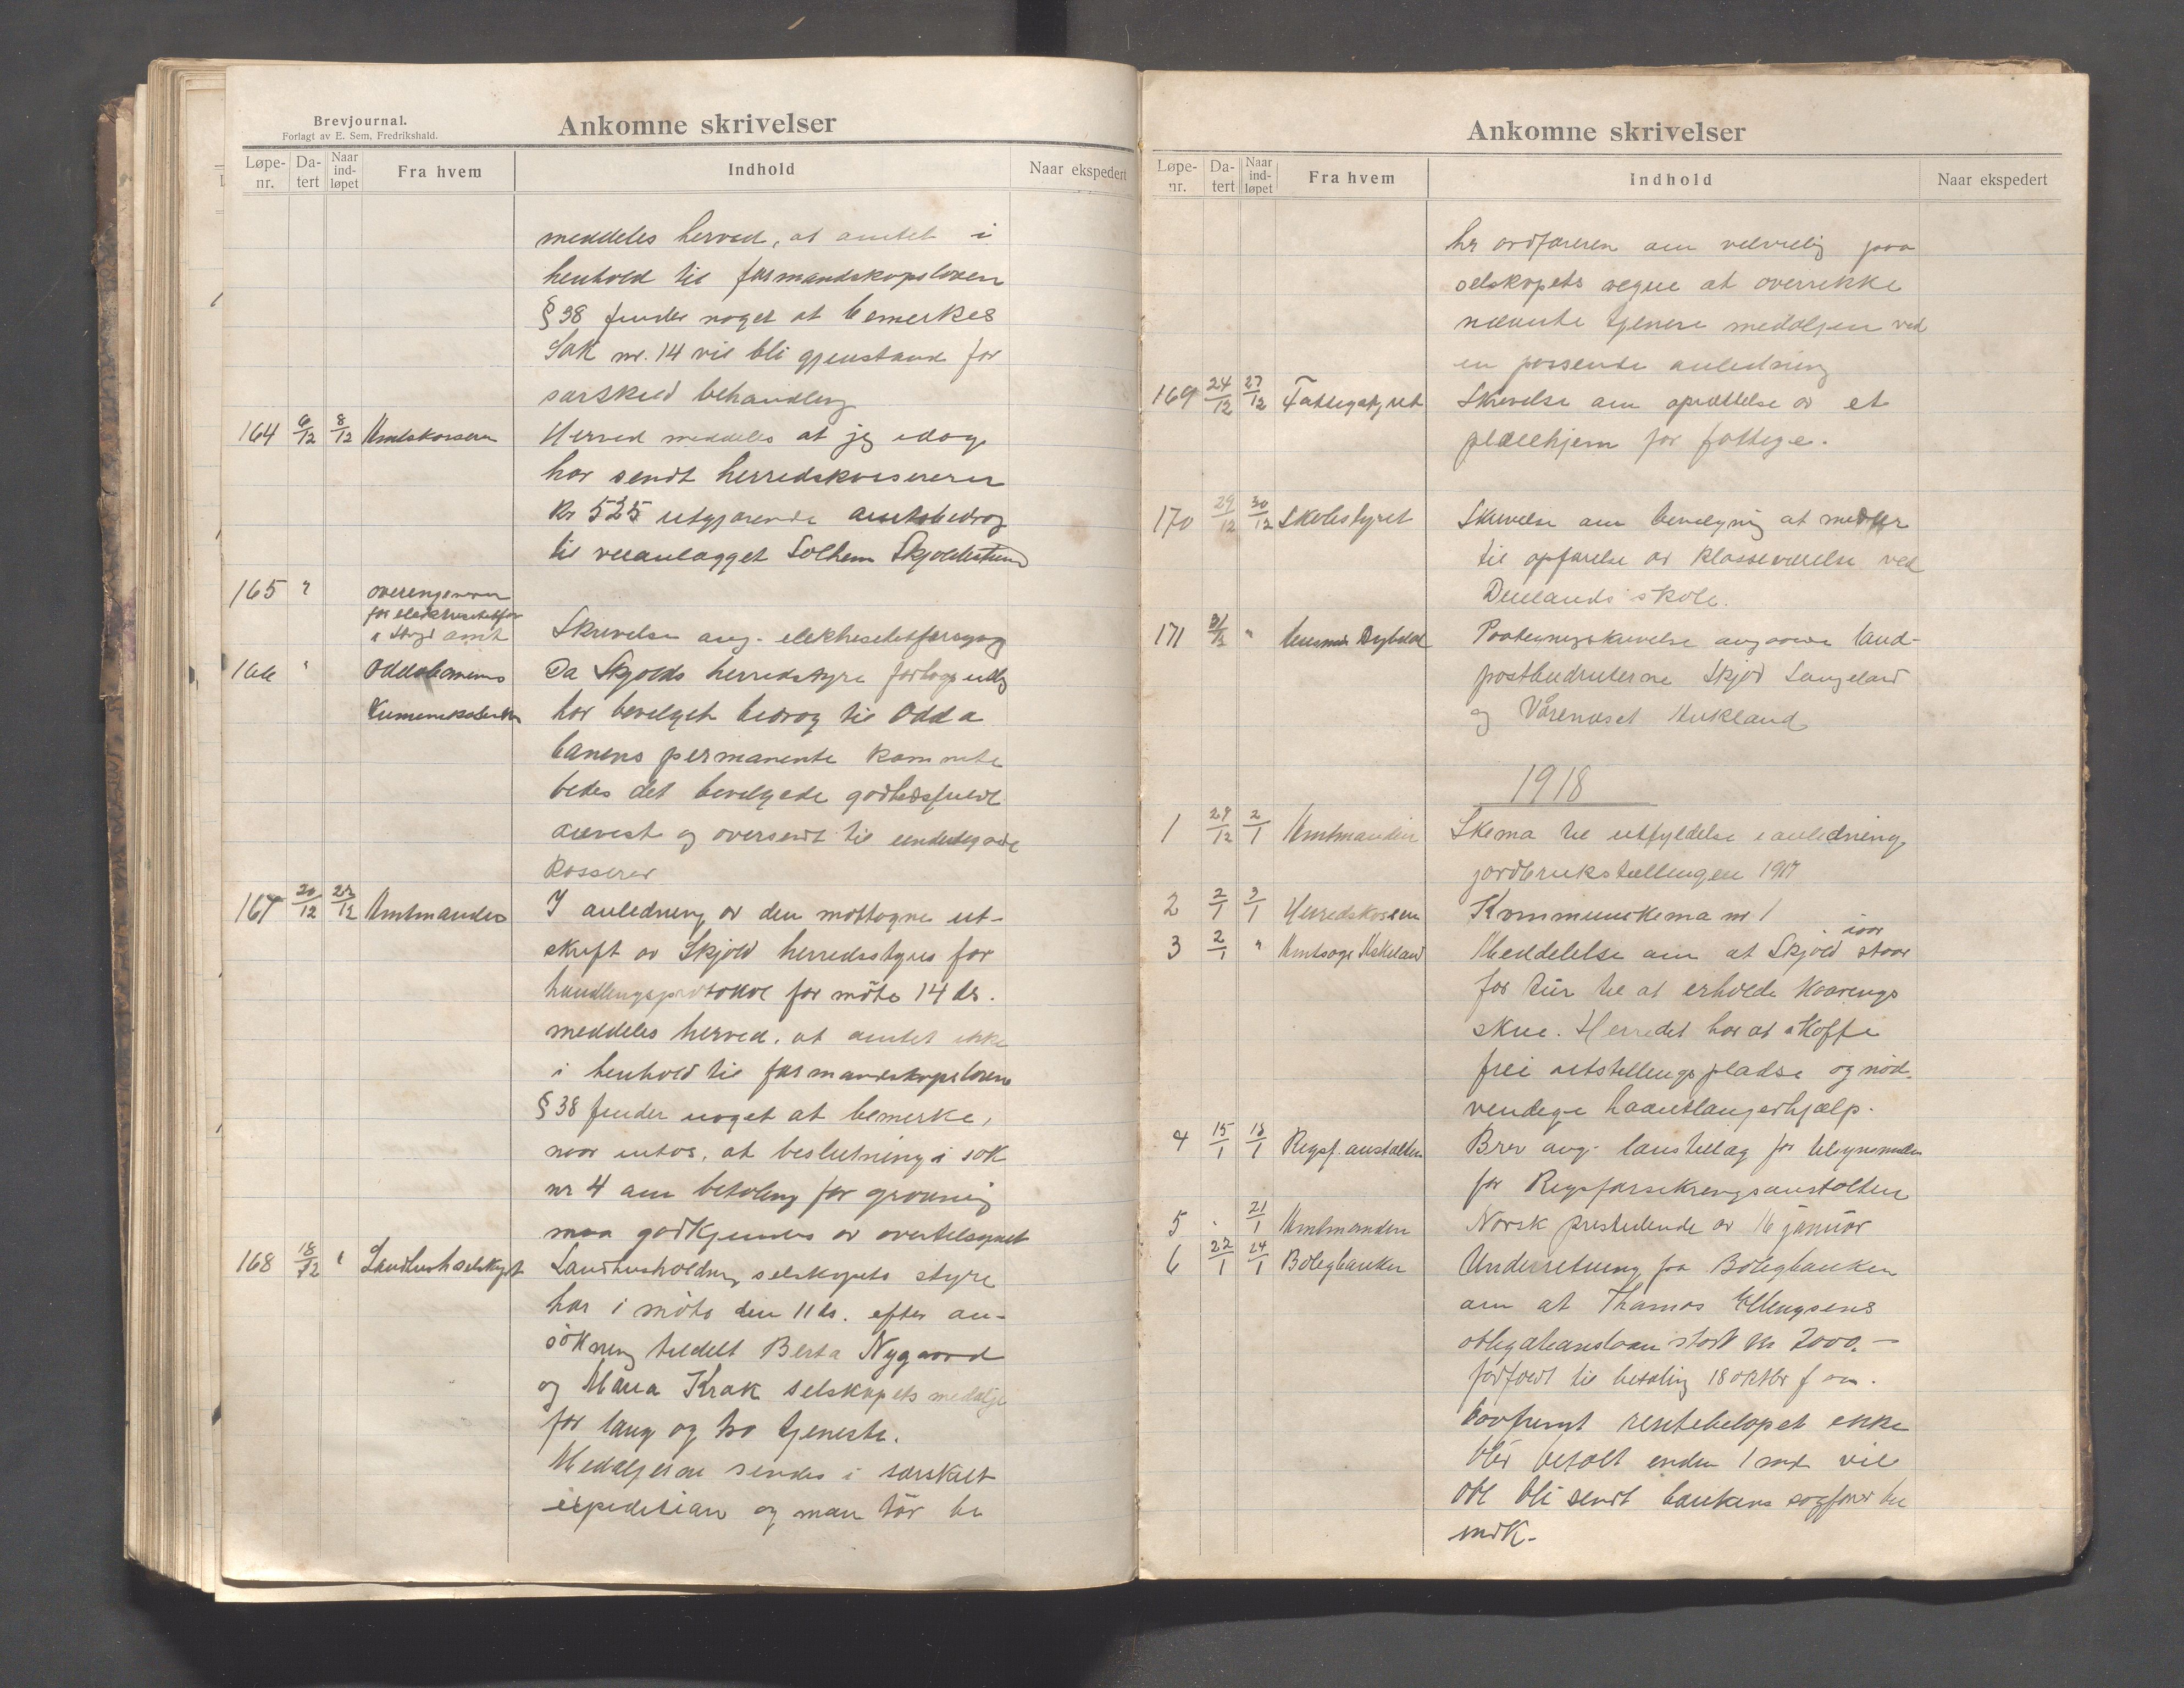 Brevjournal.
Forlagt av E. Sem, Fredrikshald.
Ankomne skrivelser
Løpe-nr. Da-tert Naar ind-løpet Fra hvem Indhold Naar ekspedert
meddeles herved, at amtet i
henhold til formandskapsloven
§ 38 finder noget at bemerkes
Sak nr. 14 vil bli gjenstand for
særskild behandling
164 6/12 8/12 Amtskasseren Herved meddeles at jeg idag
har sendt herredskasereren
kr 525 utgjørende amtsbidrag
til veianlægget Solheim Skjoldestraum
165 " overingeniøren
for elektrisitetsfor
i Stvgr amt Skrivelse ang. elektrisitetforsyng
166 " Oddabanens Da Skjolds herredstyre forlagt endlig
har bevilget bidrag til Odda
banens permanente komite
bedes det bevilgede godhedsfuldt
anvist og oversendt til undertegnede
kasserer
167 20/12 23/12 Amtmanden I anledning av den mottagne ut-
skrift av Skjold herredsstyres for
handlingsprotokol for møte 14 ds.
meddeles herved, at amtet ikke
i henhold til formandskapsloven
§ 38 finder noget at bemerke,
naar intas, at beslutning i sak
nr 4 om betaling for gravning
maa godkjendes av overtilsynet
168 18/12 " Landhush.selskapet Landhusholdning selskapets styre
har i møte den 11 ds. efter an-
søkning tildelt Berta Nygaard
og Maria Krak selskapets medalje
for lang og tro tjeneste.
Medaljerne sendes i særskilt
expedition og man tør be
Ankomne skrivelser
Løpe-nr. Da-tert Naar ind-løpet Fra hvem Indhold Naar ekspedert
hr ordføreren om velvillig paa
selskapets vegne at overrekke
nævnte tjenere medaljen ved
en passende anledning
169 24/12 27/12 Fattigstyret Skrivelse om oprettelse av et
pleiehjem for fattige.
170 29/12 30/12 Skolestyret Skrivelse om bevilgning at midler
til opførelse av klasseværelse ved
Dueland's skole.
171 31/12 " Paategningskrivelse angaaende land-
postbudruterne Skjold Langeland
og Vårenæset Aukland
1918
1 29/12 2/1 Amtmanden Skema til utfyldelse i anledning
jordbrukstællingen 1917
2 2/1 3/1 Herredskassen Kommuneskema nr 1
3 2/1 " Amtsagr Askeland Meddelelse om at Skjold iaar staar
for tur til at erholde kaarings
skue. Herredet har at skaffe
frei utstillingspladse og nød-
vendige haantlangerhjælp.
4 15/1 18/1 Riksf. anstalten Brev ang. lønstillæg for tilsynsmden
for Riksforsikringsanstalten
5 . 21/1 Amtmanden Norsk pristidende av 16 januar
6 22/1 24/1 Boligbanken Underretning fra Boligbanken
om at Thomas Ellingsens
obligationslaan stort kr 2000.—
forfaldt til betaling 18 oktbr f. aa.
Saafremt rentebeløpet ikke
blir betalt inden 1 md vil
obl bli sendt bankens sagfører til
indk.